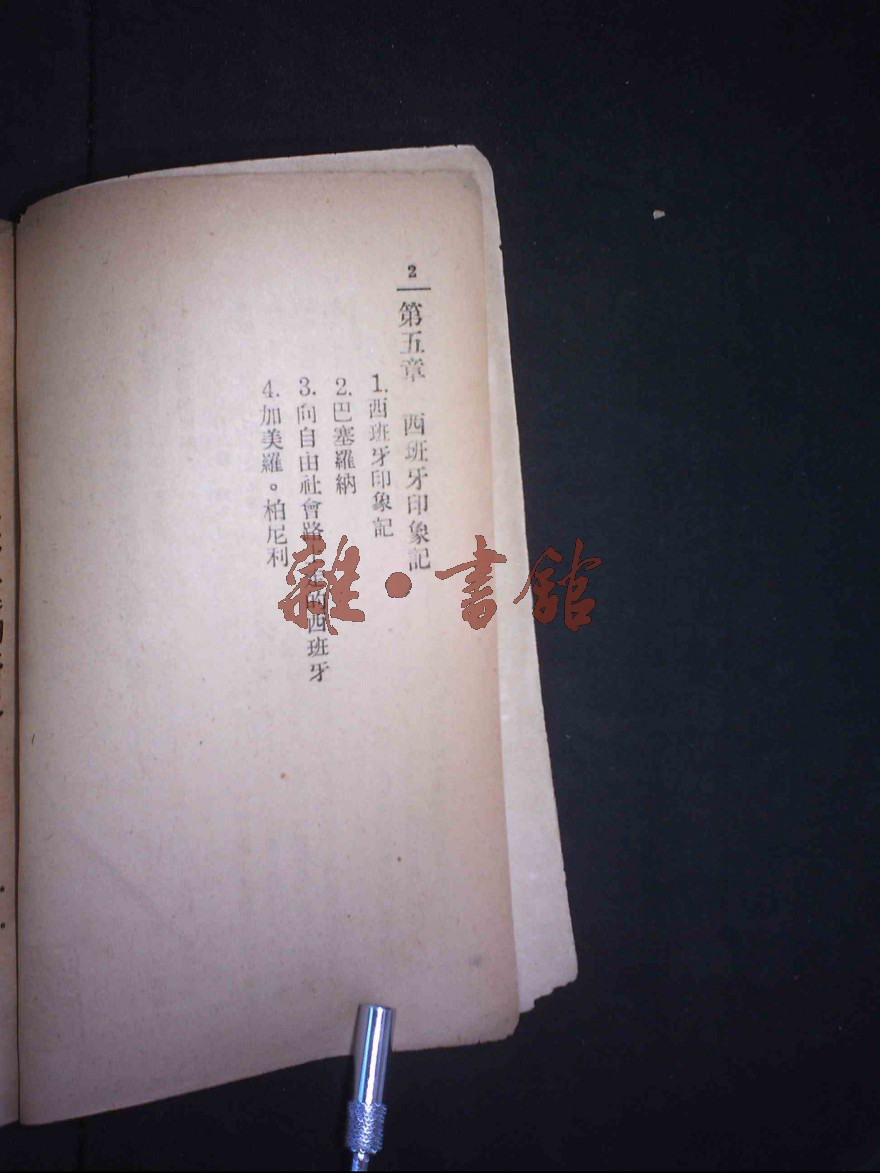 2
第五章　西班牙印象記
1. 西班牙印象記
2. 巴塞羅納
3. 向自由社會路上走的西班牙
4. 加美羅。柏尼利
雜·書館